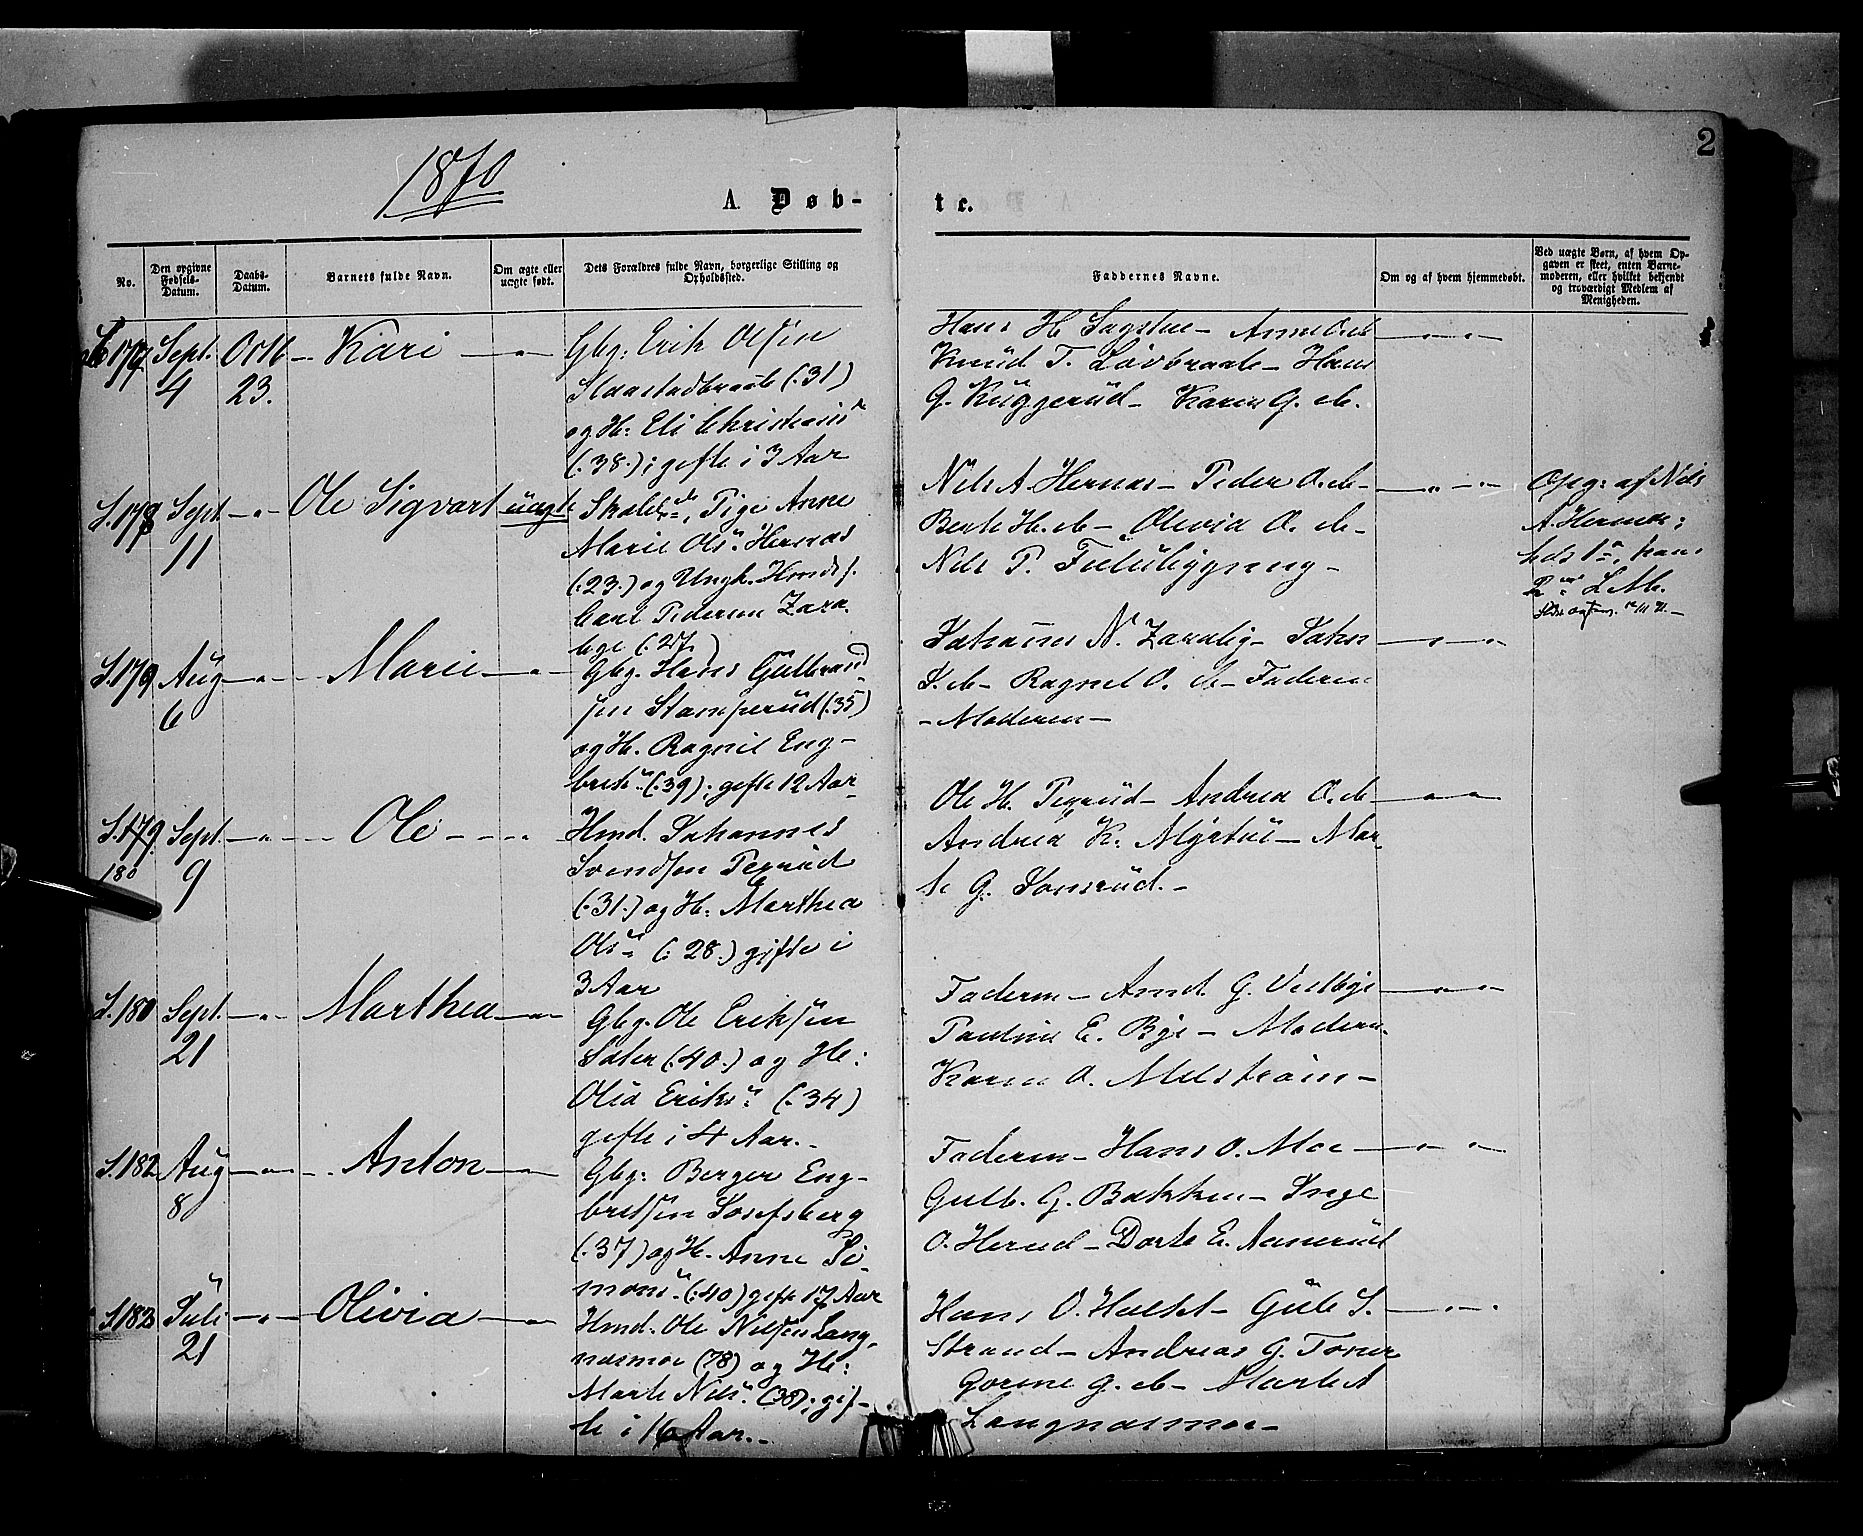 2
1870
A. Døb-
te.
No.
Den opgivne Fødsels-Datum.
Daabs-Datum.
Barnets fulde Navn.
Om ægte eller uægte født.
Dets Forældres fulde Navn, borgerlige Stilling og Opholdssted.
Faddernes Navne.
Om og af hvem hjemmedøbt.
Ved uægte Børn, af hvem Opgaven er skeet, enten Barnemoderen, eller hvilket bekjendt og troværdigt Medlem af Menigheden.
177 Sept. 4 Octb 23. Kari
Gbg: Erik Olsen
(:31)
og H: Eli Christians
(:38:); gifte i 3 Aar
Hans H Sagstue - Anne O. ib
Knud T. Løvbraate - Hans
G. Kuggerud - Karen G. ib.
S.178 Sept 11 Ole Sigvart uægte
Pige Anne
Marie Ols. Hernæs
(:23:) og Ungk. Hmds.
Carl Pedersen Zara
(:27.)
Nils A. Hernæs - Peder O. ib -
Berte H. ib - Olivia O. ib -
Nils P.
Opg: af Nils
A. Hernæs;
hds 1ste, hans
S.179 Aug 6 Marie
Gbg. Hans Gulbrand-
sen Stamperud (:35)
og H. Ragnil Eng-
brets. (:39); gifte 12 Aar
Johannes N. - Johan
S. ib - Ragnil O. ib - Faderen
- Moderen -
S.179. 180 Sept. 9 Ole
Hmd. Johannes
Svendsen Pexrud
(:31.) og H: Marthea
Ols. (:28.) gifte i
3 Aar
Ole H. Pexrud - Andrea O. ib
Andrea K. Myrstue - Mar-
te G. Sonsrud. -
S.180 Sept. 21 Marthea
Gbg. Ole Eriksen
Sæter (:40.) og H:
Olia Eriks. (:34)
gifte i 4 Aar. -
Faderen - Amd. G. Vestbye
Pauline E. Bye - Moderen
Karen O. Melstrøm -
S.182 Aug 8 Anton
Gbg: Berger Eng-
bretsen Josefsberg
(:37) og H. Anne Si-
mons. (:40) gifte 17 Aar
Faderen - Hans O. Moe
Gulb. G. Bakken - Inge
O. Herud - Dorte E. Aanerud
S.183 Juli 21 Olivia
Hmd. Ole Nilsen Lang-
næsmoe (78) og H:
Marte Nils. (38); gif-
te i 16 Aar. -
Hans O. Holst - Gule S.
Strand - Andreas G. Toner
Gorine G. ib - Marte A
Langnæsmoe -